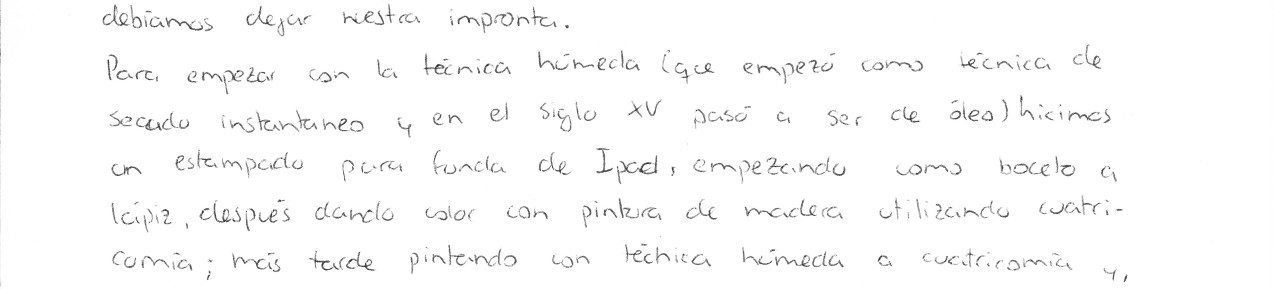 debíamos dejar nuestra impronta.
Para empezar con la técnica húmeda (que empezó como técnica de
secado instantaneo y en el siglo XV pasó a ser de óleo) hicimos
un estampado para funda de Ipad, empezando como boceto a
lápiz, después dando color con pintura de madera utilizando cuatri-
comía; más tarde pintando con técnica húmeda a cuatricomía y,